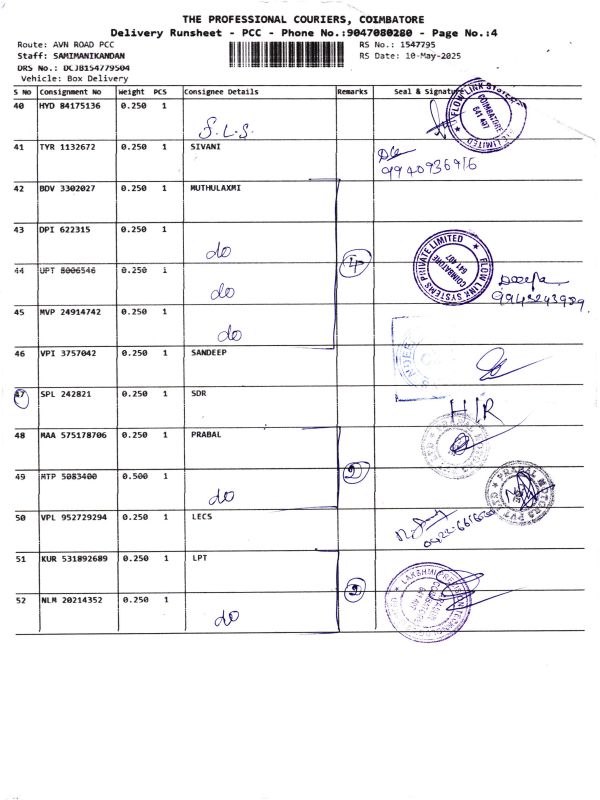 THE PROFESSIONAL COURIERS, COIMBATORE
Delivery Runsheet - PCC - Phone No.:9047080280 - Page No.:4
Route: AVN ROAD PCC
RS No.: 1547795
Staff: SAMIMANIKANDAN
RS Date: 10-May-2025
DRS No.: DCJB154779504
Vehicle: Box Delivery
S No Consignment No Weight PCS Consignee Details Remarks Seal & Signature
40 HYD 84175136 0.250 1
F.L.S.
FLOW LINK SYSTEMS PRIVATE LIMITED COIMBATORE 641 407
41 TYR 1132672 0.250 1 SIVANI
9940936916
42 BDV 3302027 0.250 1 MUTHULAXMI
43 DPI 622315 0.250 1
do
FLOW LINK SYSTEMS PRIVATE LIMITED COIMBATORE 641 407
44 UPT 8006546 0.250 1
do
Deepa
9943243989
45 MVP 24914742 0.250 1
do
46 VPI 3757042 0.250 1 SANDEEP
47 SPL 242821 0.250 1 SDR
H/R
48 MAA 575178706 0.250 1 PRABAL
49 MTP 5083400 0.500 1
do
2
PRABAL MOTORS PVT LTD
50 VPL 952729294 0.250 1 LECS
51 KUR 531892689 0.250 1 LPT
2
52 NLM 20214352 0.250 1
do